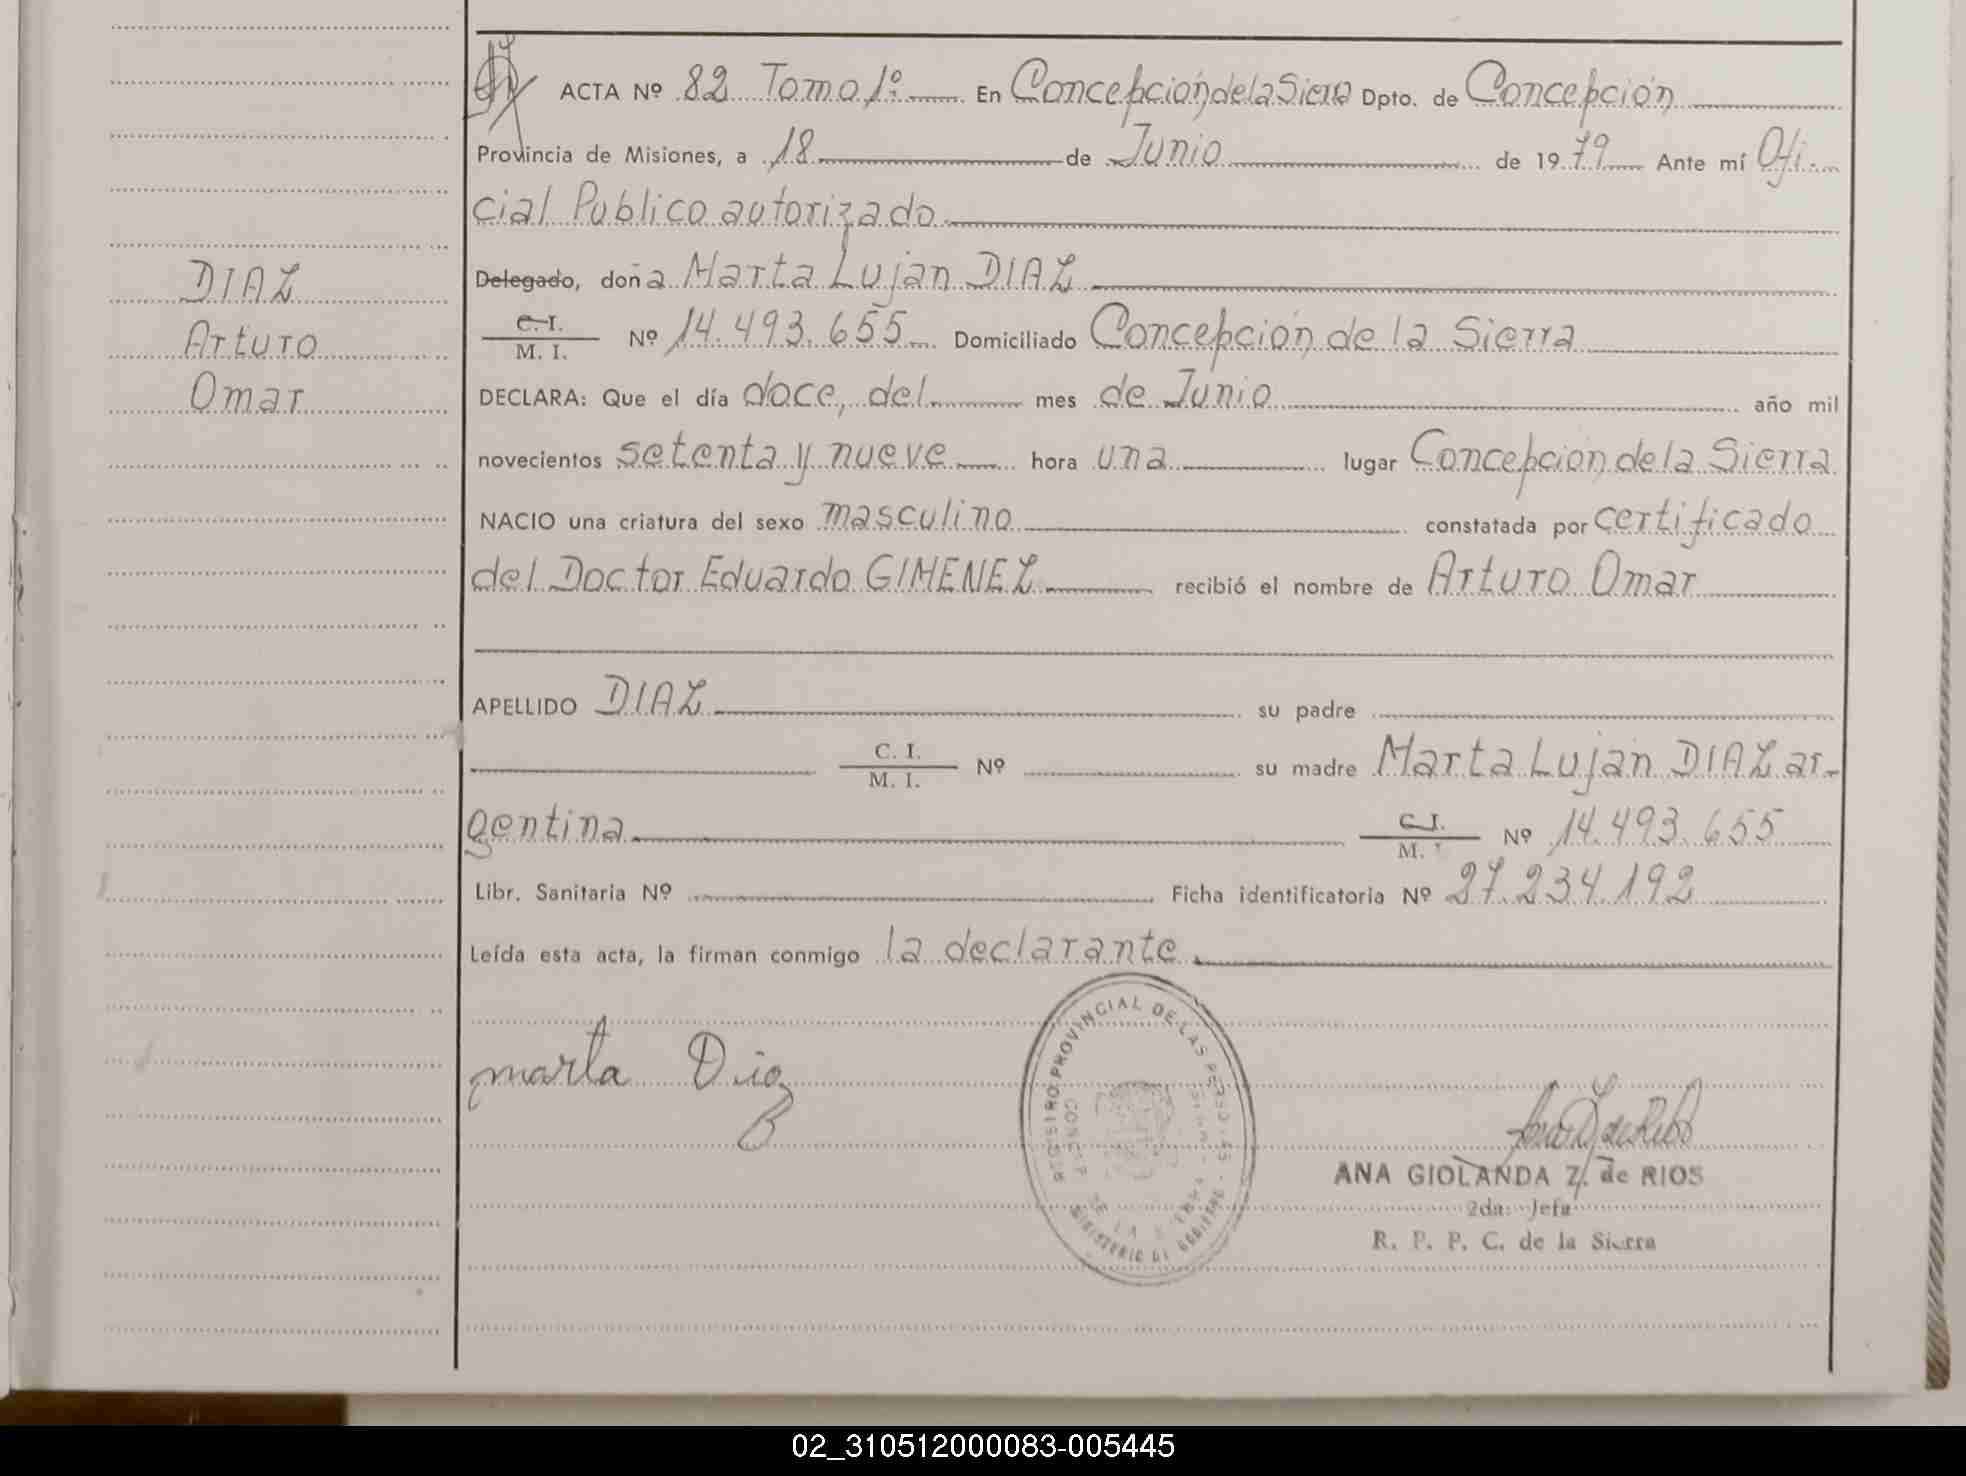 ACTA Nº 82 Tomo 1º En Concepción de la Sierra Dpto. de Concepción
Provincia de Misiones, a 18 de Junio de 1979 Ante mí Ofi-
cial Publico autorizado
Delegado, doña Marta Lujan DIAZ
DIAZ
Arturo
Omar
C. I.
M. I. Nº 14.493.655 Domiciliado Concepción de la Sierra
DECLARA: Que el día doce, del mes de Junio año mil
novecientos setenta y nueve hora una lugar Concepción de la Sierra
NACIO una criatura del sexo masculino constatada por certificado
del Doctor Eduardo GIMENEZ recibió el nombre de Arturo Omar
APELLIDO DIAZ su padre
C. I.
M. I. Nº su madre Marta Luján DIAZ ar-
gentina C. I.
M. I. Nº 14.493.655
Libr. Sanitaria Nº Ficha identificatoria Nº 27.234.192
Leída esta acta, la firman conmigo la declarante.
marta Diaz
REGISTRO PROVINCIAL DE LAS PERSONAS
MINISTERIO DE GOBIERNO
CONCEP DE LA SIERRA
ANA GIOLANDA Z. de RIOS
2da. Jefa
R. P. P. C. de la Sierra
02_310512000083-005445